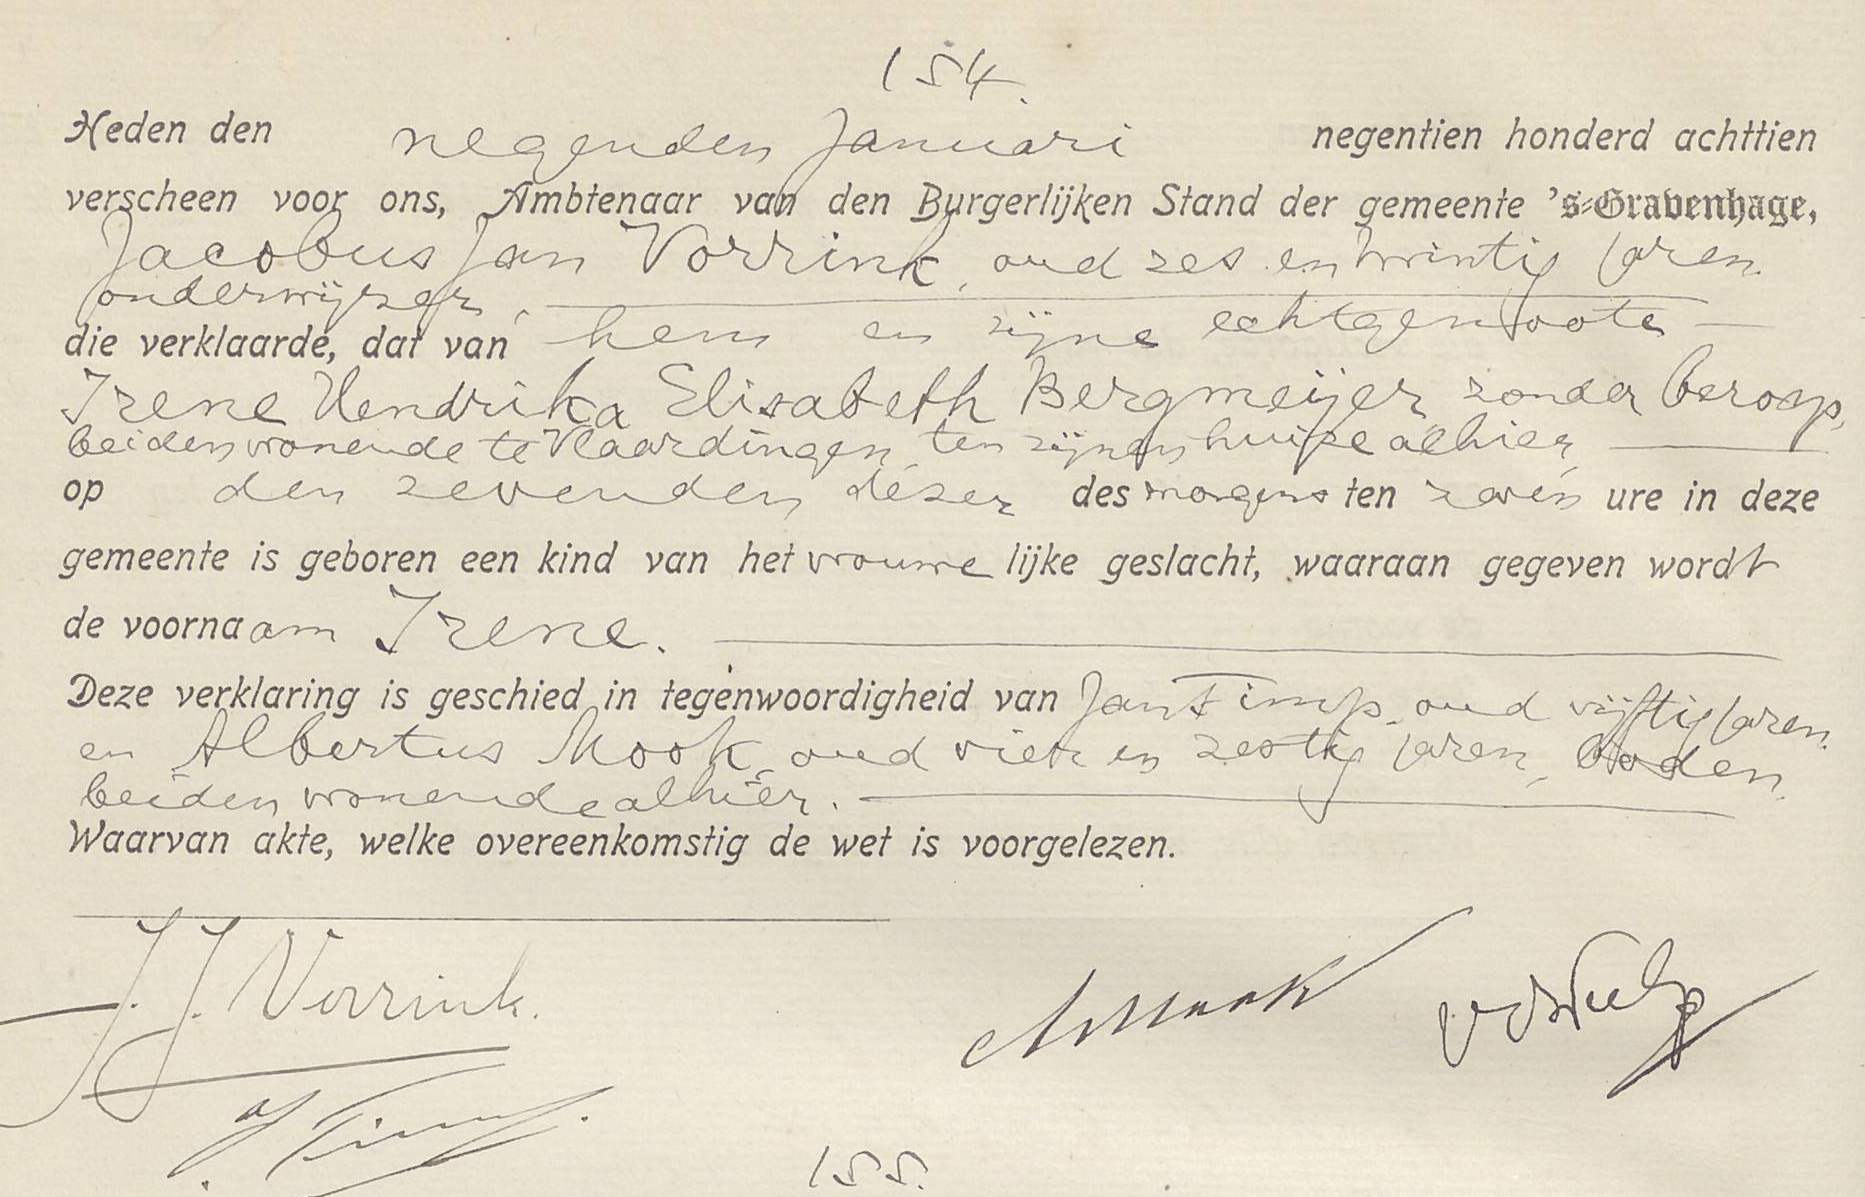 154.
Heden den negenden Januari negentien honderd achttien
verscheen voor ons, Ambtenaar van den Burgerlijken Stand der gemeente 's-Gravenhage,
Jacobus Jan Vorrink, oud zes en twintig jaren.
onderwijzer,
die verklaarde, dat van hem en zijne echtgenoote
Irene Hendrika Elisabeth Bergmeijer zonder beroep,
beiden wonende te Vlaardingen, ten zijnen huize alhier,
op den zevenden dezer des morgens ten zeven ure in deze
gemeente is geboren een kind van het vrouwelijke geslacht, waaraan gegeven wordt
de voornaam Irene.
Deze verklaring is geschied in tegenwoordigheid van Jan Timp, oud vijftig jaren.
en Albertus Mook, oud vier en zestig jaren, boden,
beiden wonende alhier.
Waarvan akte, welke overeenkomstig de wet is voorgelezen.
J. J. Vorrink. AMook
J Timp.
155.